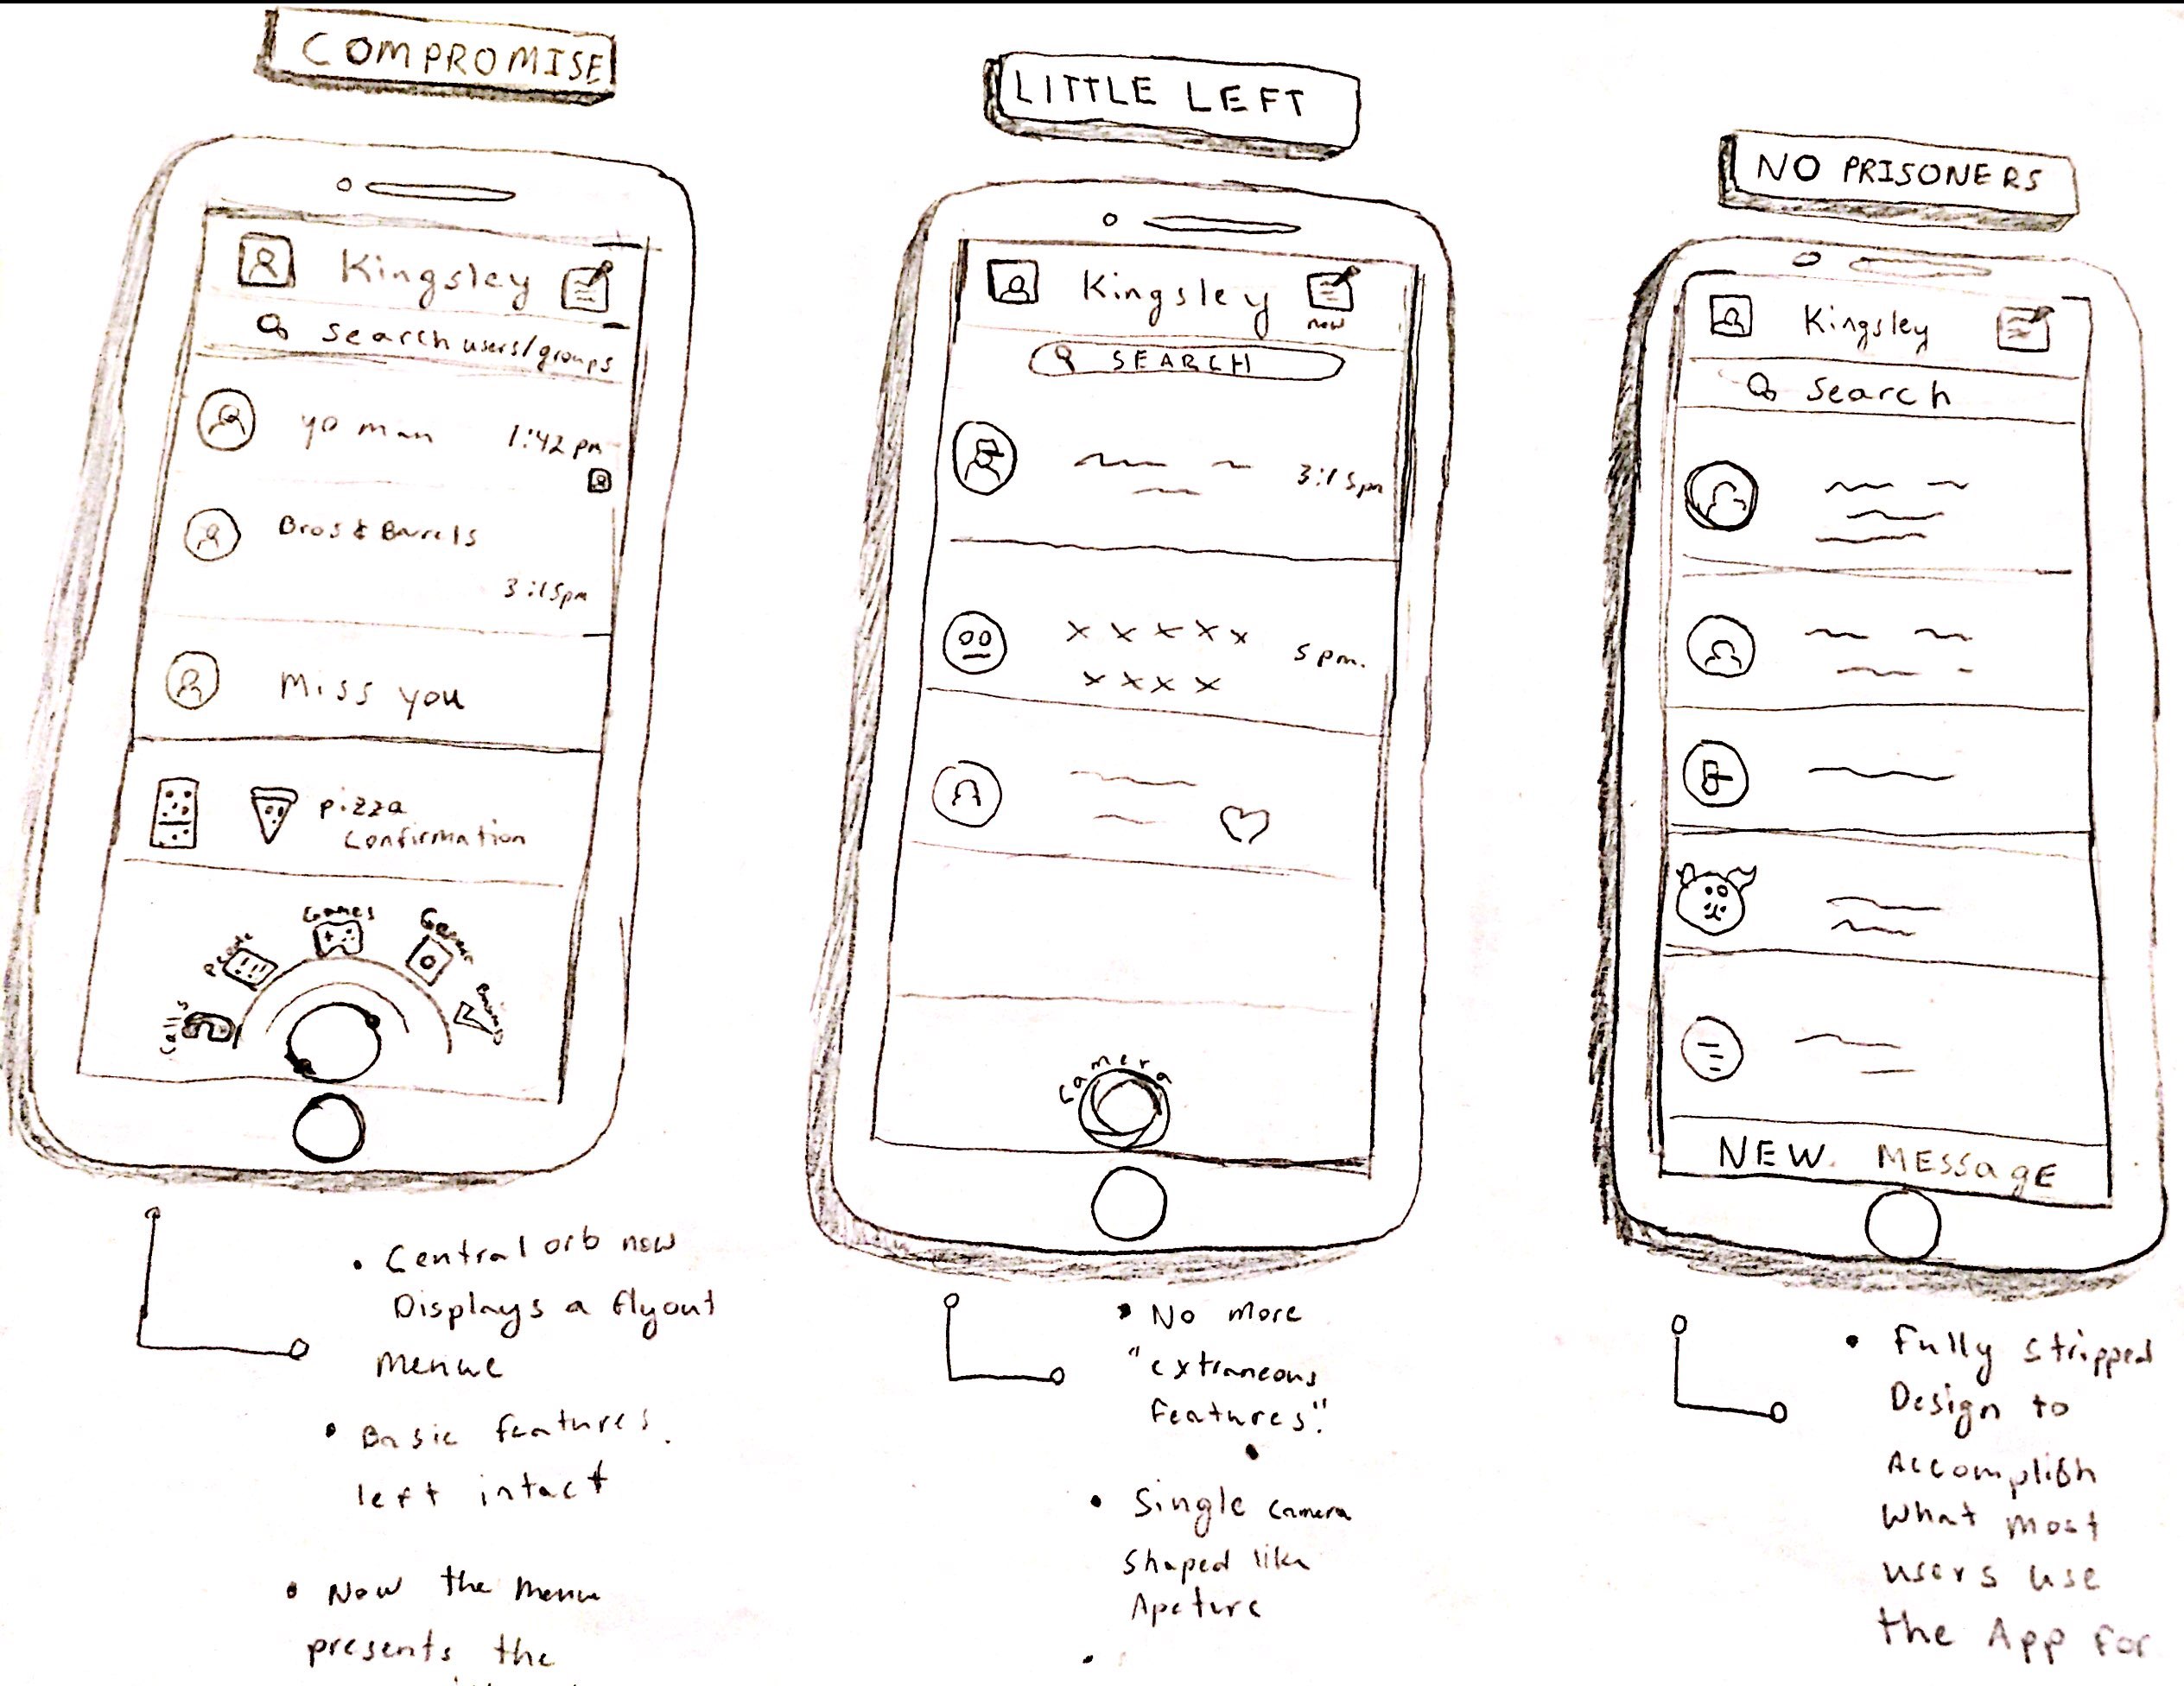 COMPROMISE
Kingsley
Search users/groups
yo man 1:42 pm
Bros & Barrels
3:15pm
Miss you
pizza
Confirmation
Calls
People
Games
• Central orb now
Displays a flyout
Menue
• Basic features.
left intact
• Now the Menue
presents the
LITTLE LEFT
Kingsley
new
SEARCH
3:15pm
x x x x x 5 pm.
x x x x
Camera
• No more
"extraneous
Features".
• Single camera
Shaped like
Apeture
NO PRISONERS
Kingsley
Search
NEW MESSagE
• Fully stripped
Design to
Accomplish
What most
users use
the App For